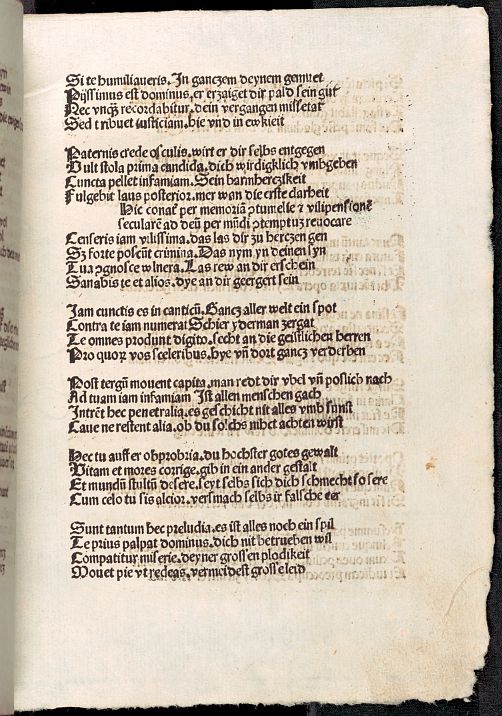 Si te humiliaueris. In ganczem deynem gemuet
Pijssimus est dominus, er erzaiget dir pald sein gut
Nec vncȝ recordabitur. dein vergangen missetat
Sed tribuet iusticiam. hie vnd in ewkieit
Paternis crede osculis. wirt er dir selbs entgegen
Vult stola prima candida. dich wirdigklich vmbgeben
Cuncta pellet infamiam. Sein barmherczikeit
Fulgebit laus posterior. mer wan die erste darheit
Hic conat᷑ per memoriā ꝯtumelie ⁊ vilipensiōne
secularē ad deū per mūdi ꝯtemptuȝ reuocare
Censeris iam vilissima. das las dir zu herczen gen
Sȝ forte poscūt crimina. Das nym yn deinen syn
Tua ꝯgnosce wlnera. Las rew an dir erschein
Sanabis te et alios. dye an dir geergert sein
Iam cunctis es in canticū. Gancz aller welt ein spot
Contra te iam numerat Schier yderman zergat
Te omnes produnt digito. secht an die geistlicher herren
Pro quoꝝ vos sceleribus. hye vn̄ dort gancz verderben
Post tergū mouent capita. man redt dir vbel vn̄ poslich nach
Ad tuam iam infamiam Ist allen menschen gach
Intrēt hec penetralia. es geschicht nit alles vmb sunst
Caue ne restent alia. ob du solchs nihct achten wirst
Hec tu auffer obprobria. du hochster gotes gewalt
Vitam et mores corrige. gib in ein ander gestalt
Et mundū stultū desere. seyt selbs sich dich schmecht so sere
Cum celo tu sis alcior. versmach selbs ir falsche eer
Sunt tantum hec preludia. es ist alles noch ein spil
Te prius palpat dominus. dich nit betrueben wil
Compatitur miserie. deyner grossen plodikeit
Mouet pie vt redeas. vermeidest grosse leid